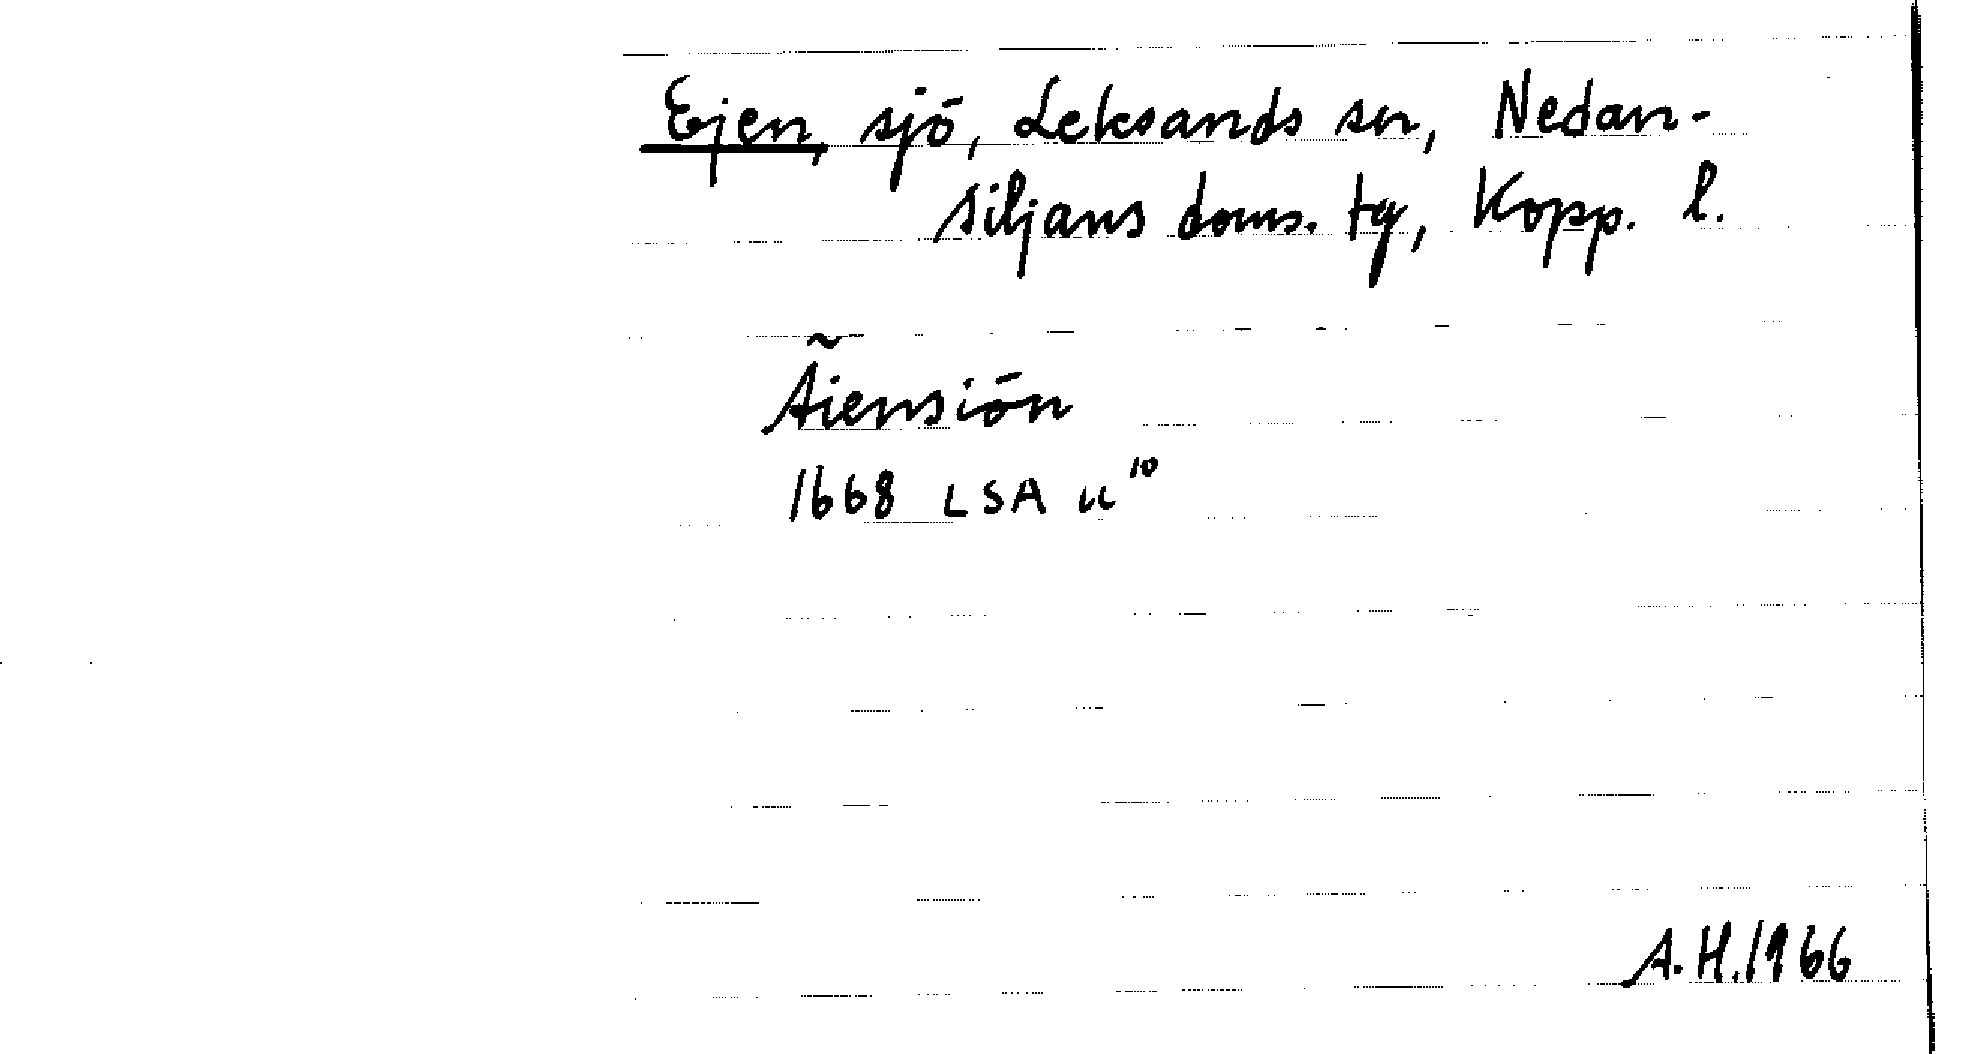 Ejen, sjö, Leksands sn, Nedan-
siljans doms. tg, Kopp. l.
Ãiensiön
1668 LSA u¹⁰
A.H. 1966